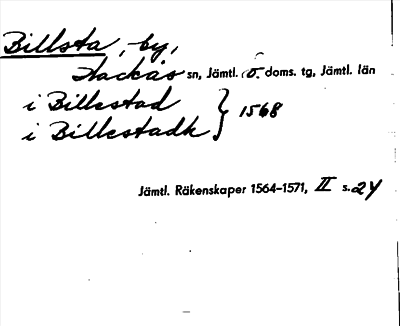 Billsta, by,
Hackås sn, Jämtl. ö. doms. tg, Jämtl. län
i Billestad
i Billestadh } 1568
Jämtl. Räkenskaper 1564-1571, II s. 24